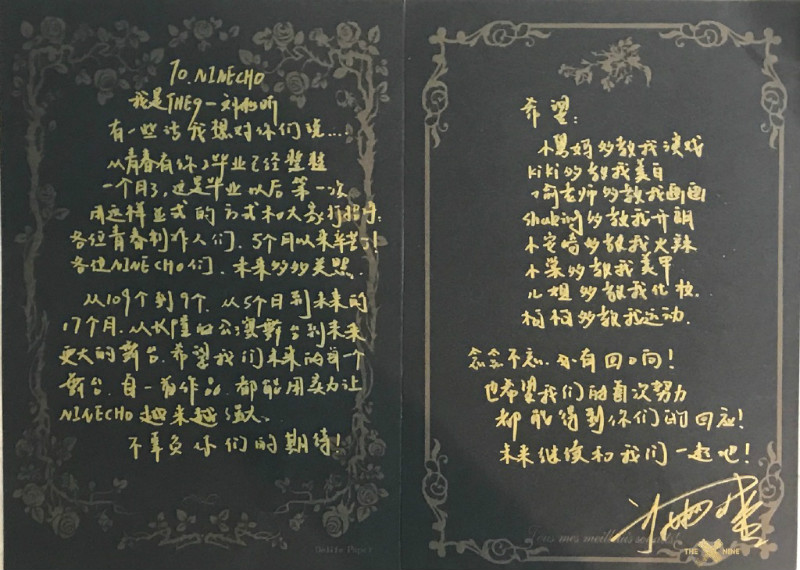 TO. NINECHO
我是THE9-刘雨昕
有一些话我想对你们说...!
从青春有你2毕业已经整整
一个月了,这是毕业以后第一次
用这样正式的方式和大家打招呼:
各位青春制作人们,5个月以来辛苦了!
各位NINECHO们,未来多多关照.
从109个到9个,从5个月到未来的
17个月.从长隆的公演舞台到未来
更大的舞台.希望我们未来的每个
舞台,每一份作品.都能用实力让
NINECHO越来越强大.
不辜负你们的期待!
希望:
小舅妈多教我演戏
kiki多教我美白
俞老师多教我画画
shaking多教我开朗
小安崎多教我火辣
小棠多教我美甲
儿姐多教我化妆.
柯柯多教我运动.
念念不忘.必有回响!
也希望我们的每次努力
都能得到你们的回应!
未来继续和我们一起吧!
THE NINE